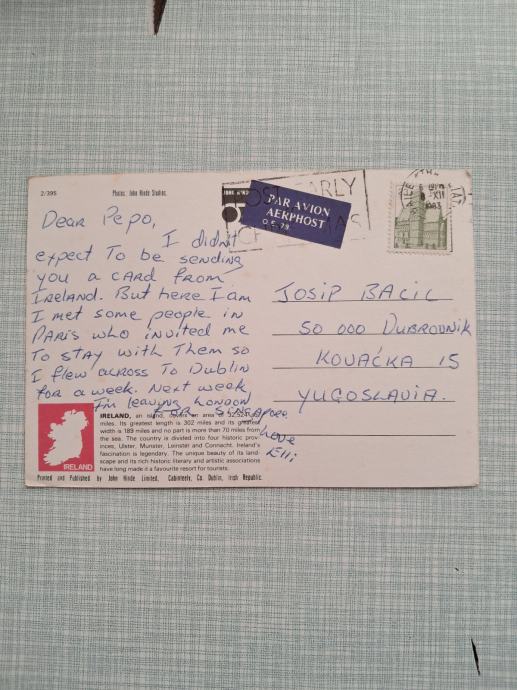 2/395
Photos: John Hinde Studios.
POST EARLY
CHRISTMAS
PAR AVION
AERPHOST
JOHN HINDE
XII
1983
Dear Pepo,
I didn't
expect To be sending
you a card from
Ireland. But here I am
I met some people in
Paris who invited me
To stay with Them so
I flew across To Dublin
for a week. Next week
I'm leaving London
FOR SINGAPORE
Love
Elli
JOSIP BACIC
50 000 DUBROVNIK
KOVAĆKA 15
YUGOSLAVIA.
IRELAND, an island, covers an area of
miles. Its greatest length is 302 miles and its greatest
width is 189 miles and no part is more than 70 miles from
the sea. The country is divided into four historic prov-
inces, Ulster, Munster, Leinster and Connacht. Ireland's
fascination is legendary. The unique beauty of its land-
scape and its rich historic literary and artistic associations
have long made it a favourite resort for tourists.
IRELAND
Printed and Published by John Hinde Limited, Cabinteely, Co. Dublin, Irish Republic.